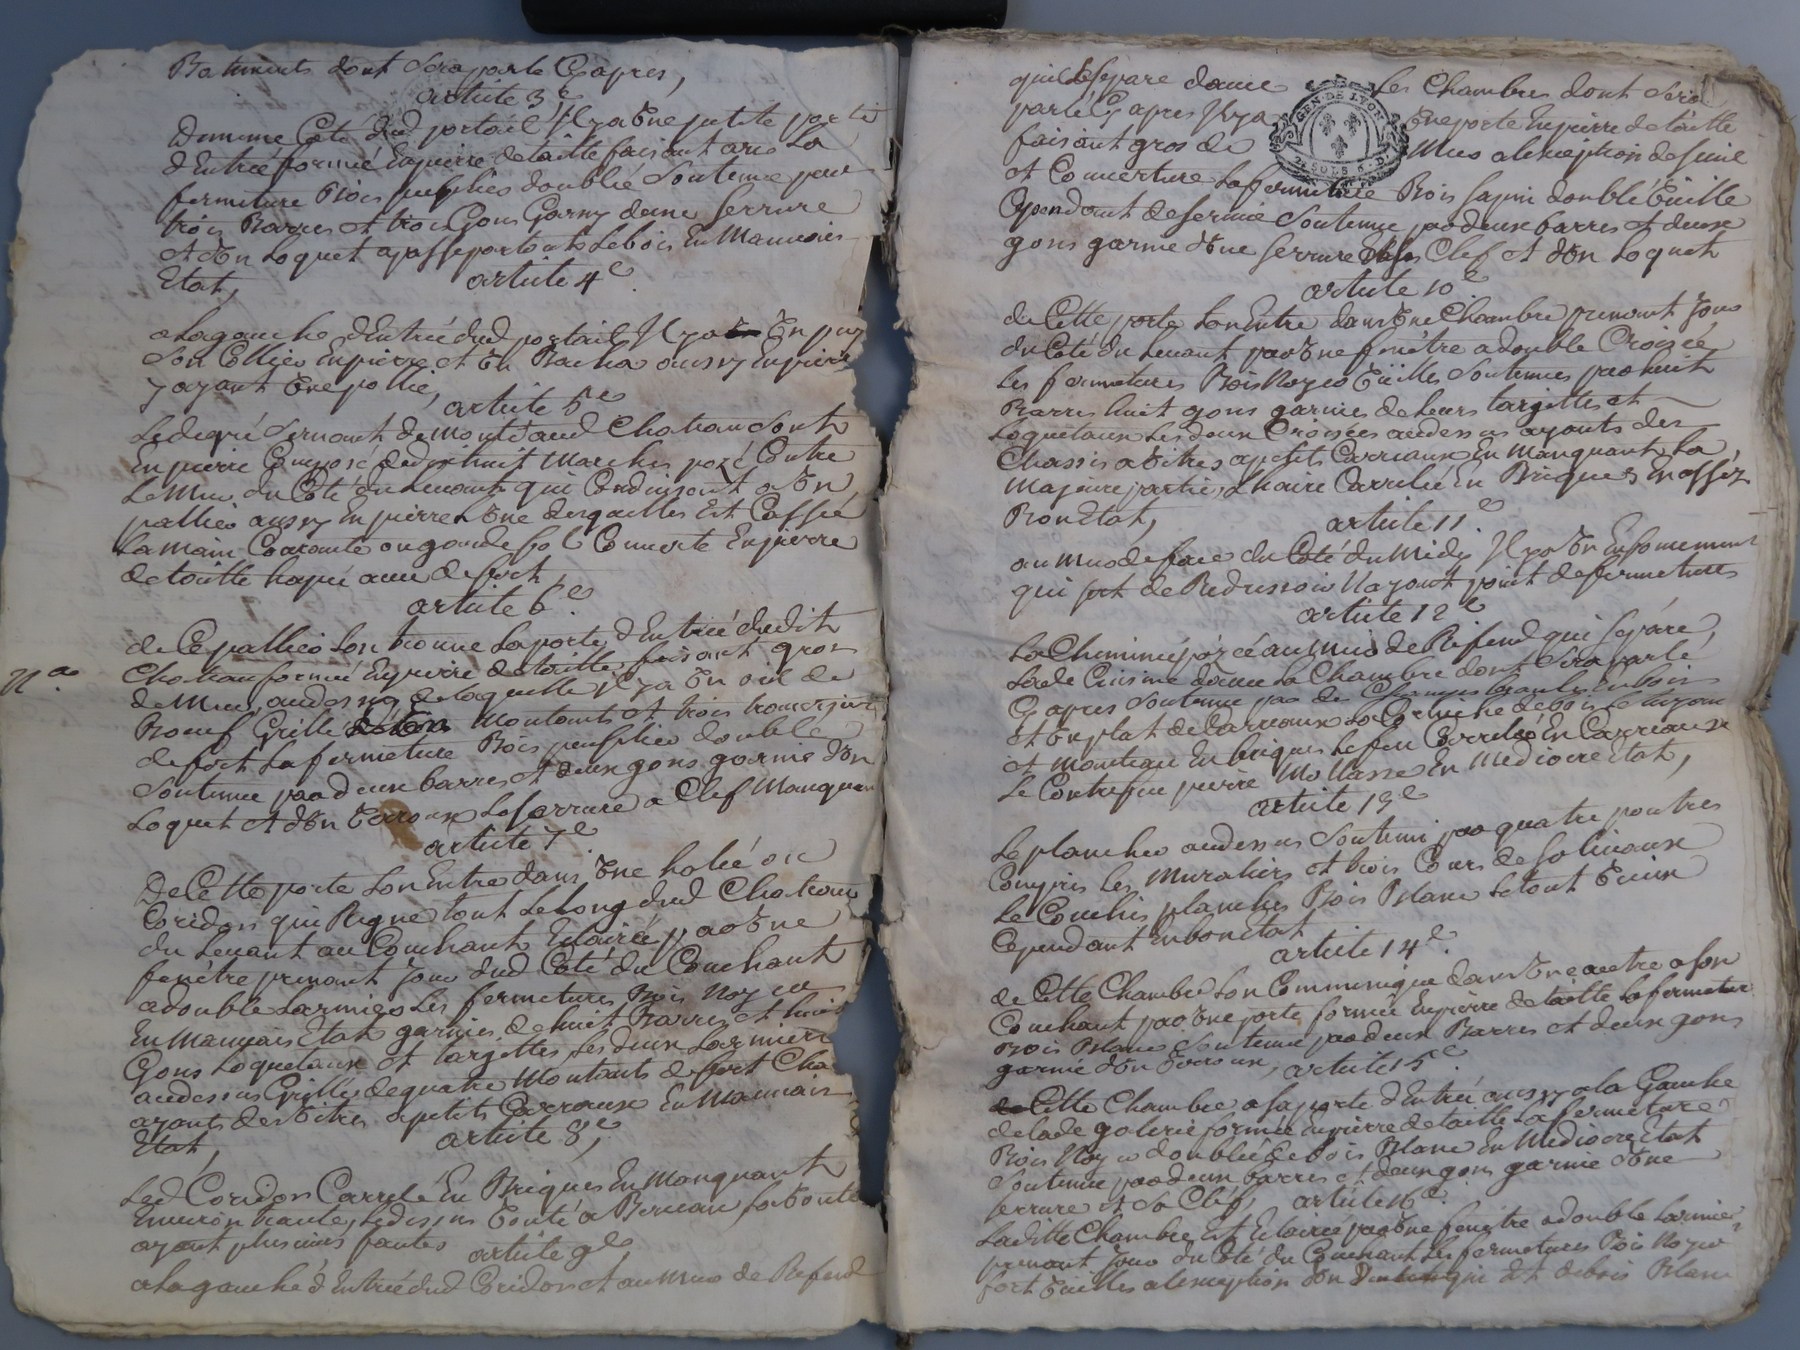 Batiments dont sera parlé Cy apres,
article 3.e
Du meme Coté dud portail Il ya une petite porte
d'Entrée formée En pierre de taille faisant arc La
fermeture Bois peuplier doublée soutenue par
trois Barres et trois Gons Garny d'une serrure
et d'un Loquet a passe partout Le bois En Mauvais
Etat,
article 4.e
a La gauche d'Entrée dud portail Il ya un puy
son Collier En pierre et un Bacha aussy En pierre
y ayant une pollie,
article 5.e
Le degré servant de montée aud Chateau sont
En pierre Composé de dix huit Marches posé Contre
Le Mur du Coté du Levant qui Conduisent a un
pallier aussy En pierre L'une desquelles Est Cassée
La main Courante ou garde fol Couverte En pierre
de taille hapée avec de fert,
article 6.e
de Ce pallier Lon trouve La porte d'Entrée dudit
Chateau formée En pierre de taille faisant gros
de Mur, audessus de laquelle Il ya un oeil de
Boeuf Grillé de montants et trois traversiers
de fert La fermeture Bois peuplier double
soutenue par deux barres et deux gons garnie d'un
Loquet et d'un verroux La serrure a Clef Manquant
article 7.e
De Cette porte Lon Entre dans une halée ou
Coridor qui Regne tout Le Long dud Chateau
du Levant au Couchant Eclairée par une
fenêtre prenant jour dud Coté du Couchant
a double Larmier Les fermetures Bois Noyer
En Mauvais Etat garnies de huit Barres et huit
Gons Loquetaux et targettes Les deux Larmiers
audessus Grillés de quatre Montants de fert
ayants des vitres a petits Carreaux En Mauvais
Etat,
article 8.e
Led Coridor Carrelé En Briques En Manquant
Environ trante, Le dessus vouté a Berceau La voute
ayant plusieurs fautes
article 9.e
a La gauche d'Entrée dud Coridor et au Mur de Refend
qui Le separe d'avec Les Chambres dont sera
parlé Cy apres Il ya une porte En pierre de taille
faisant gros de Mur a L'exeption de seuil
et Couverture La fermeture Bois sapin double vieille
Cependant de fermie soutenue par deux barres et deux
gons garnie d'une serrure sa Clef et d'un Loquet
GEN · DE LYON
2 SOLS 8 · D
article 10.e
de Cette porte Lon Entre dans une Chambre prenant Jour
du Coté du Levant par une fenêtre a double Croisée
Les fermetures Bois Noyer vieilles soutenues par huit
Barres huit gons garnies de Leurs targettes et
Loquetaux Les deux Croisées audessus ayants des
Chassis a vitres a petits Carreaux En Manquant La
Majeure partie, L'haire Carrelée En Briques En assez
Bon Etat,
article 11.e
au mur de face du Coté du Midy Il ya un Enfoncement
qui sert de Redressoir N'ayant point de fermetures
article 12.e
La Cheminée posée au mur de Refend qui separe,
Lade Cuisine d'avec La Chambre dont sera parlé
Cy apres soutenue par de En bois
et un plat de Carreaux La Corniche de bois Le tuyau
et manteau En briques Le feu Carrelé En Carreaux
Le Contrefeu pierre Mollasse En Mediocre Etat,
article 13.e
Le plancher audessus soutenu par quatre poutres
Compris Les Muraliers et trois Cours de soliveaux
Le Couchis planches Bois Blanc Le tout vieux
Cependant En bon Etat
article 14.e
de Cette Chambre Lon Communique dans une autre a son
Couchant par une porte formée En pierre de taille La fermeture
Bois Blanc soutenue par deux Barres et deux gons
garnie d'un verroux,
article 15.e
Cette Chambre a sa porte d'Entrée aussy a la Gauche
de lade galerie formée En pierre de taille La fermeture
Bois Noyer doublée de bois Blanc En Mediocre Etat
soutenue par deux barres et deux gons garnie d'une
serrure et sa Clef,
article 16.e
Laditte Chambre Est Eclairée par une fenêtre a double Larmier
prenant Jour du Coté du Couchant Les fermetures Bois Noyer
fort vieilles a L'exeption d'un qui Est de bois Blanc